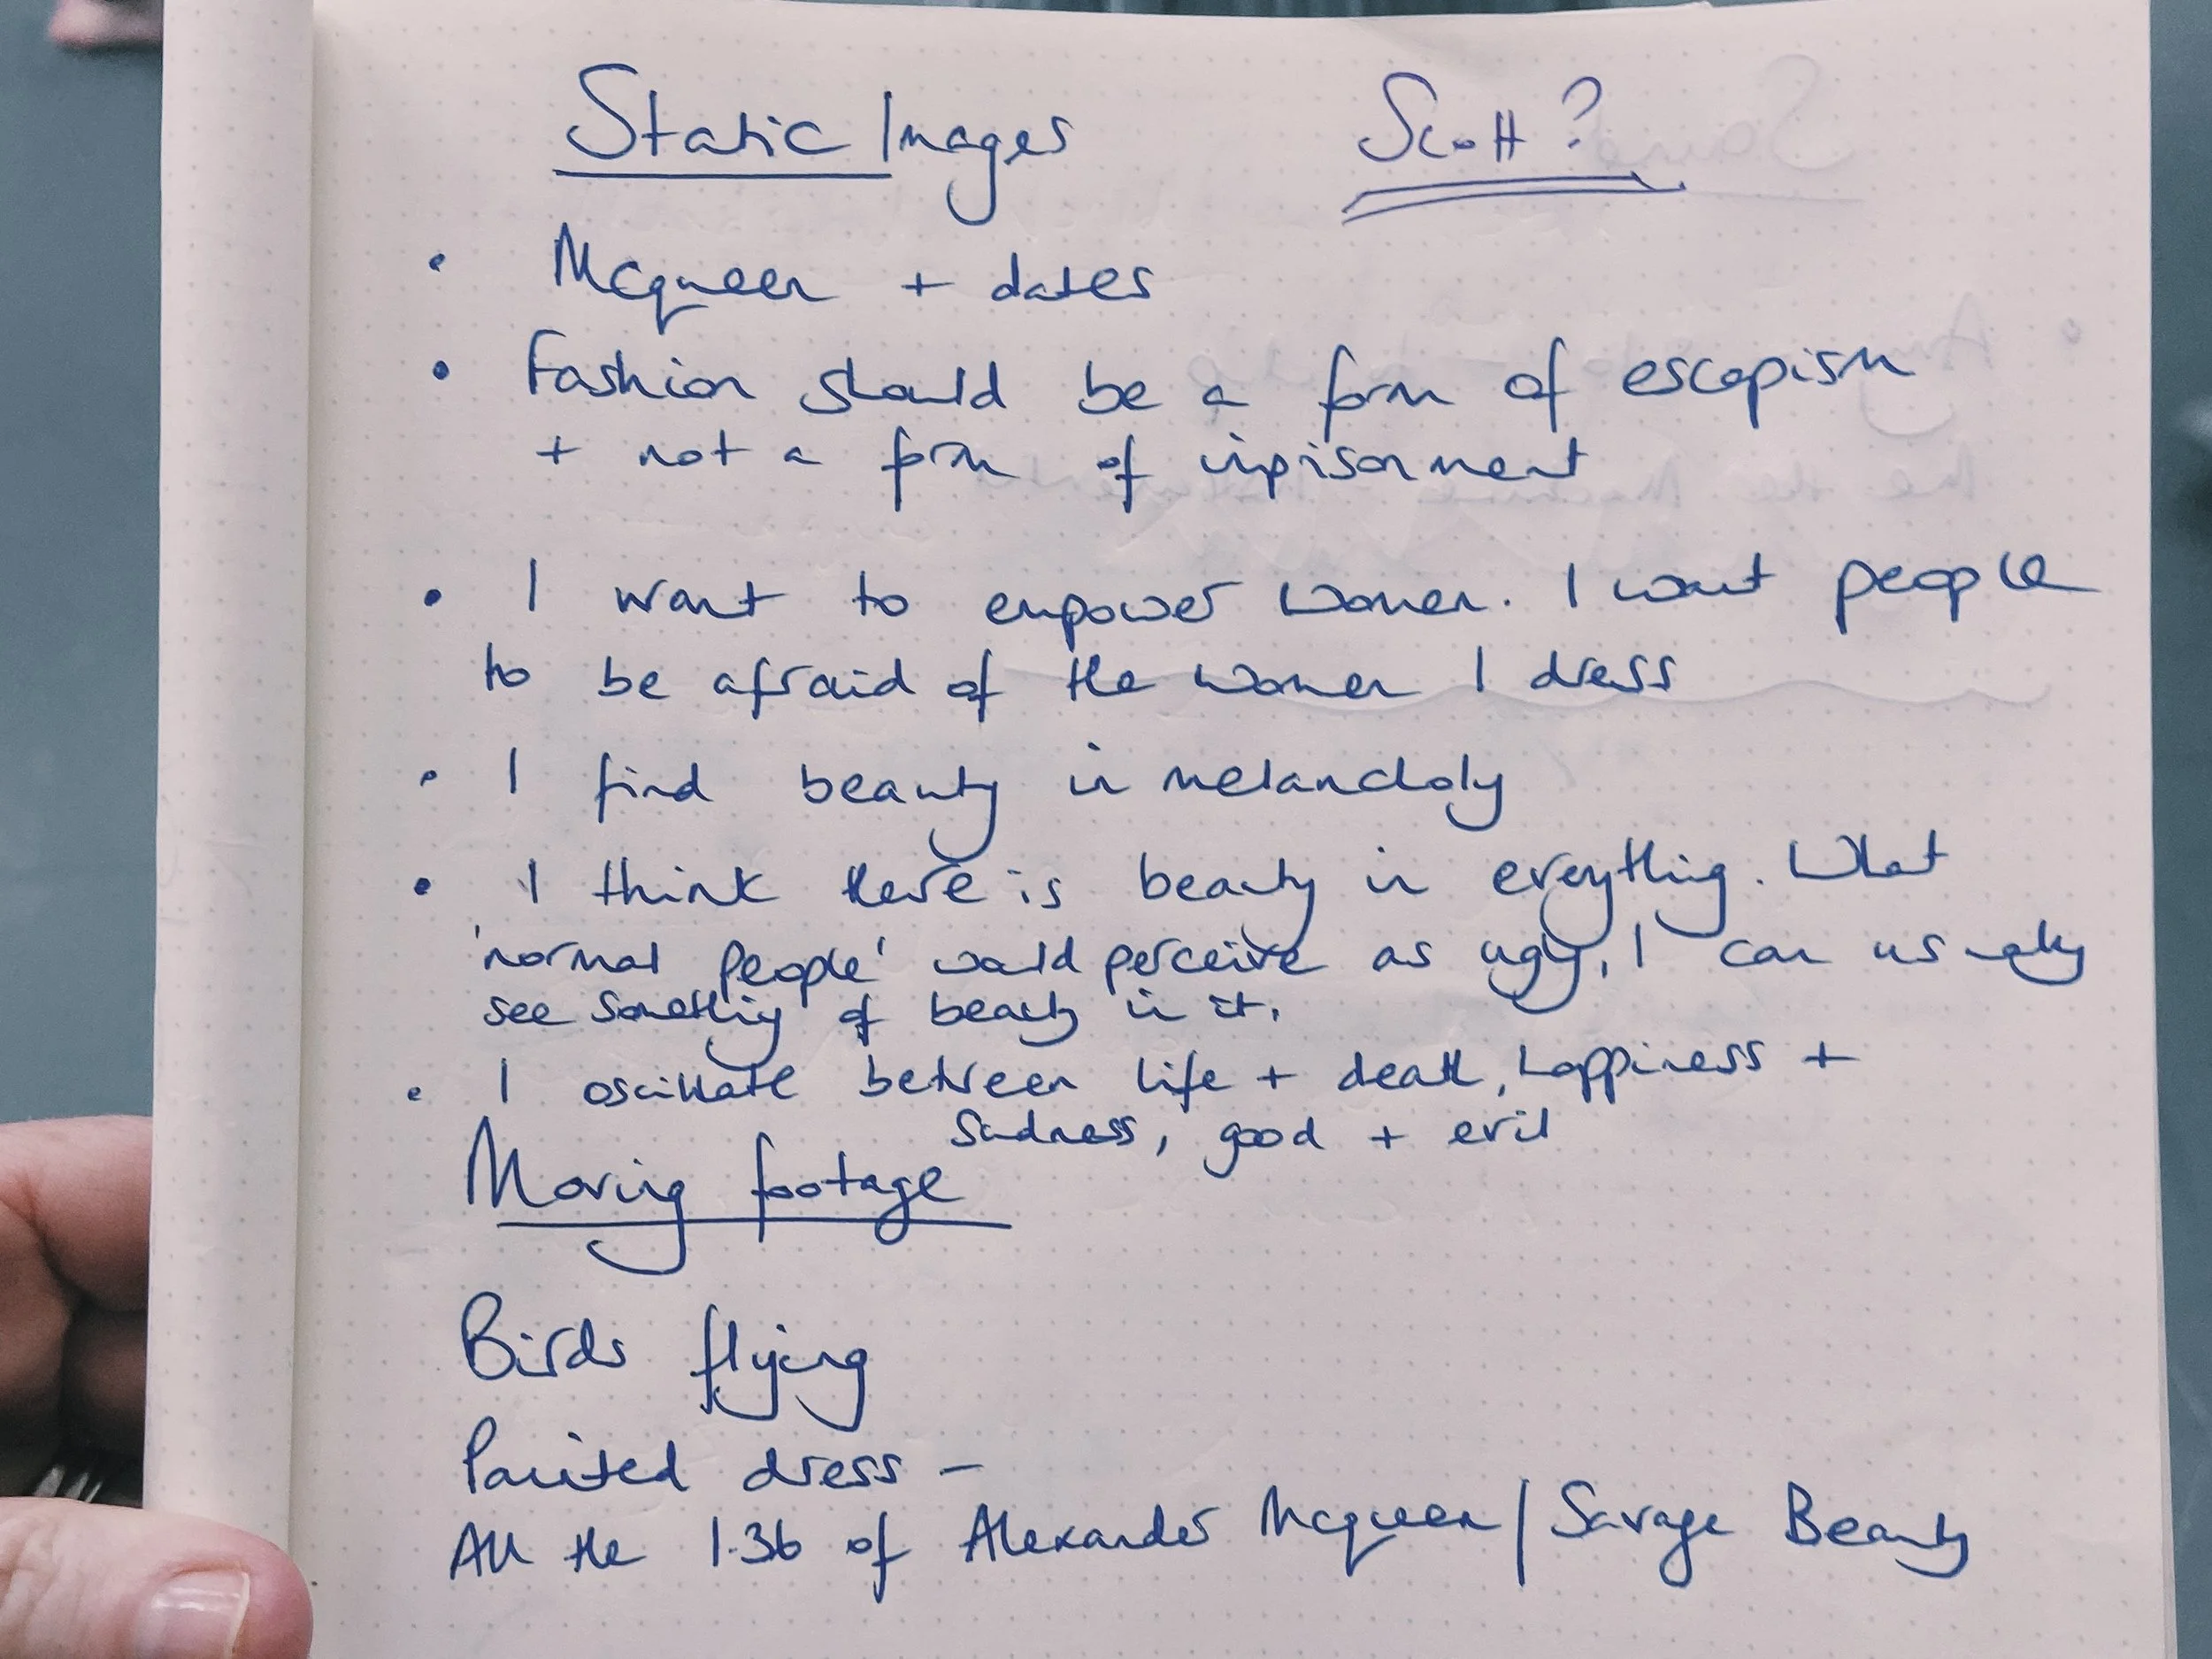 Static Images Scott?
• Mcqueen + dates
• Fashion should be a form of escapism
+ not a form of impisonment
• I want to empower women. I want people
to be afraid of the women I dress
• I find beauty in melancholy
• I think there is beauty in ereything. What
'normal people' would perceive as ugly, I can usually
see something of beauty in it.
• I oscillate between life + death, happiness +
sadness, good + evil
Moving footage
Birds flying
Painted dress -
All the 1.36 of Alexander Mcqueen / Savage Beauty